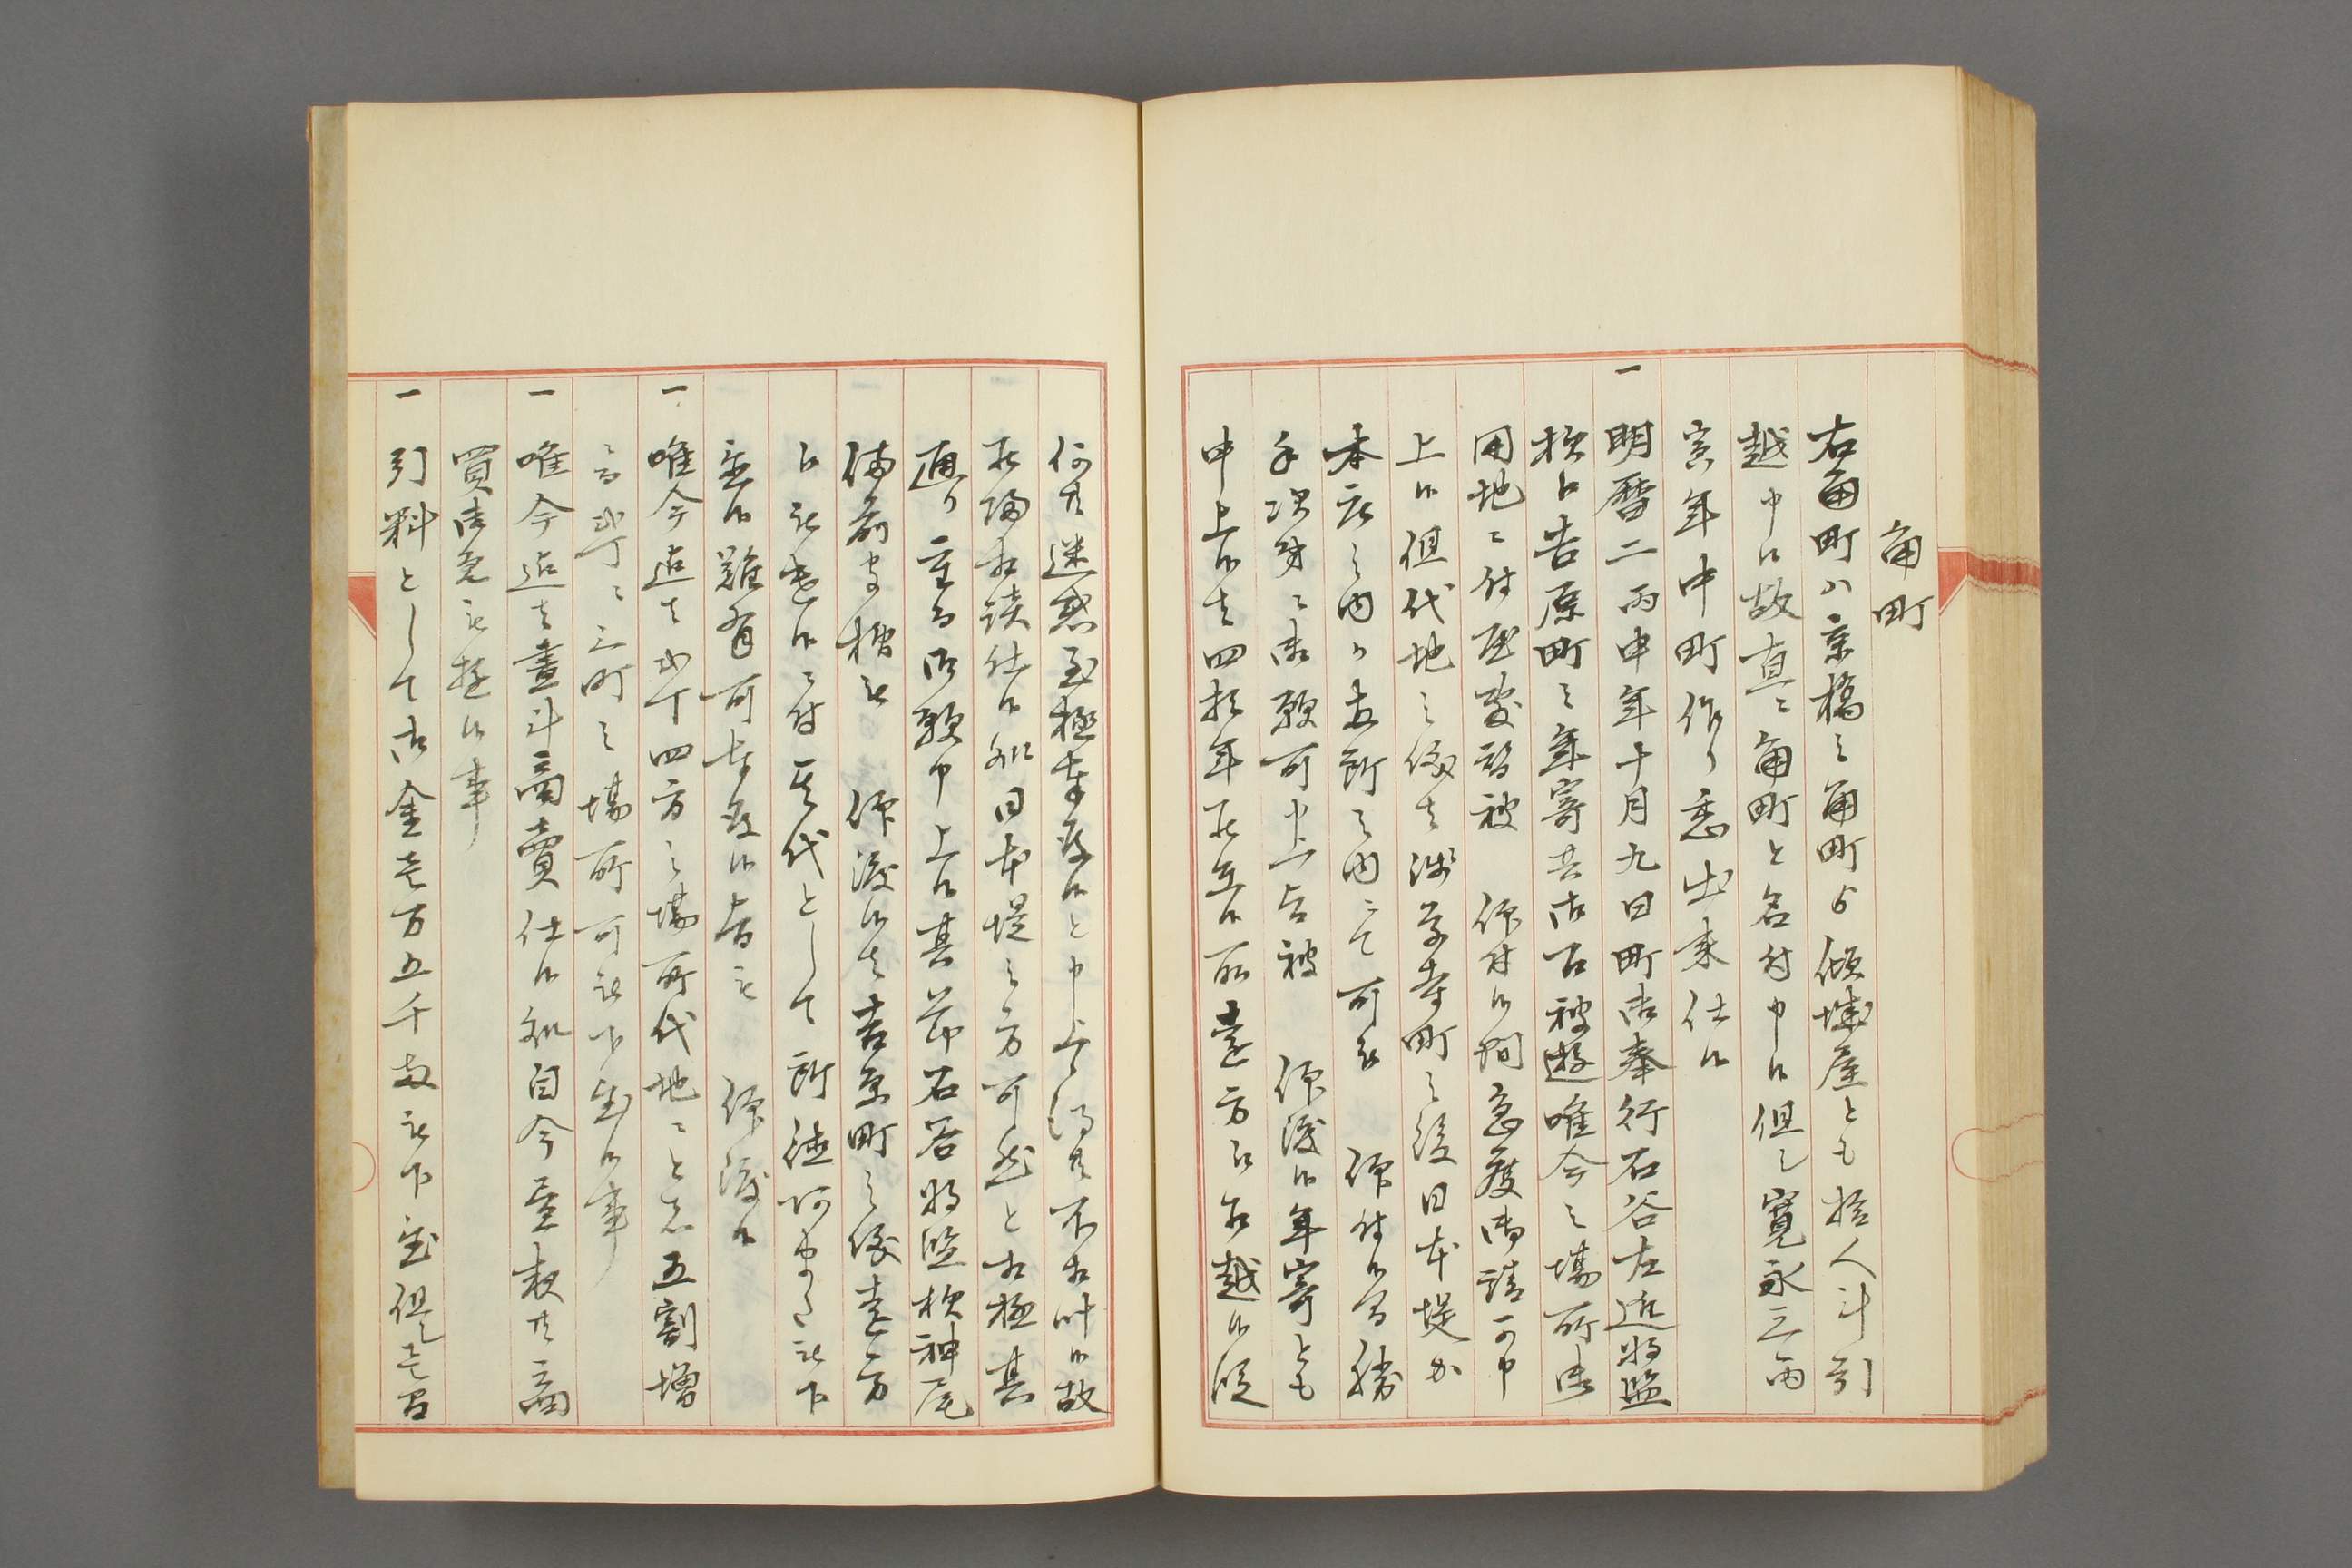 角町
右角町ハ京橋之角町ゟ傾城屋とも拾人斗引
越申候故直ニ角町と名付申候但シ寛永三丙
寅年中町作り悉出来仕候
一 明暦二丙申年十月九日町御奉行石谷左近将監
様ゟ吉原町之年寄共御召被遊唯今之場所御
用地ニ付屋敷替被 仰付候間急度御請可申
上候但代地之儀者浅草寺町之後日本堤か
本所之内か両所之内ニて可被 仰付候間勝
手次第ニ御願可申上旨被 仰渡候年寄とも
申上候者四拾年所在候所遠方江引越候段
何共迷惑至極奉存候と申上候得共不相叶候故
罷帰相談仕候処日本堤之方可然と相極其
通り重而御願申上候其節石谷将監様神尾
備前守様被 仰渡候者吉原町之儀遠方
江被遣候ニ付其代として所徳阿また被下
置候難有可奉存候旨被 仰渡候
一 唯今迄者弐丁四方之場所代地ニと之五割増
ニ而弐丁ニ三町之場所可被下置候事
一 唯今迄者昼斗商売仕候処自今昼夜共商
買御免被遊候事
一 引料として御金壱万五千両被下置但シ壱間